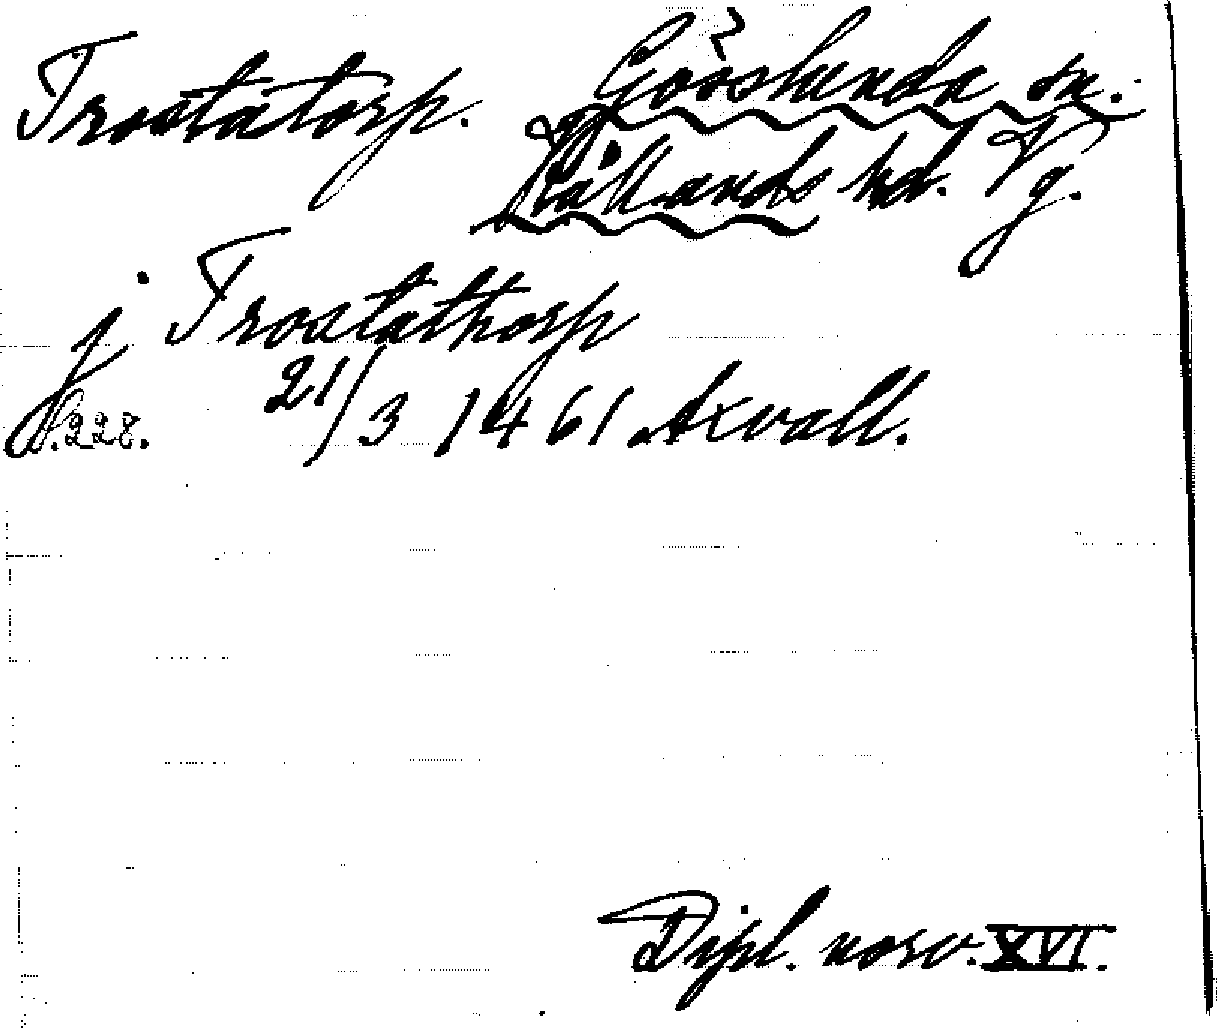 Trostatorp. Gösslunda sn.
Kållands hd. Vg.
j Trostathorp
S. 228. 21/3 1461 Axvall.
Dipl. norv. XVI.